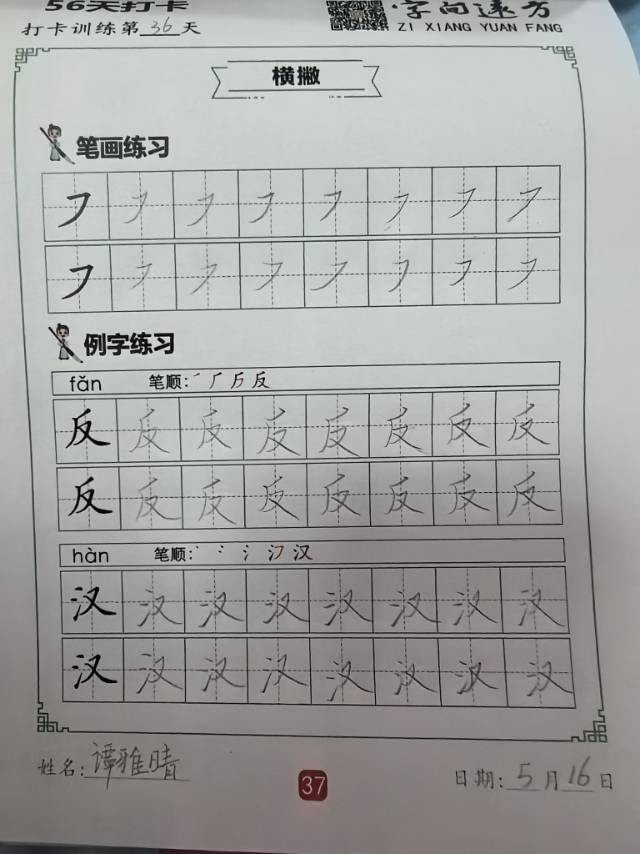 56天打卡
打卡训练第36天
字向远方
ZI XIANG YUAN FANG
横撇
笔画练习
㇇ ㇇ ㇇ ㇇ ㇇ ㇇ ㇇ ㇇
㇇ ㇇ ㇇ ㇇ ㇇ ㇇ ㇇ ㇇
例字练习
fǎn 笔顺: ㇒ 厂 反
反 反 反 反 反 反 反 反
反 反 反 反 反 反 反 反
hàn 笔顺: 丶 冫 氵 汉
汉 汉 汉 汉 汉 汉 汉 汉
汉 汉 汉 汉 汉 汉 汉 汉
姓名: 谭雅晴
37
日期: 5月16日